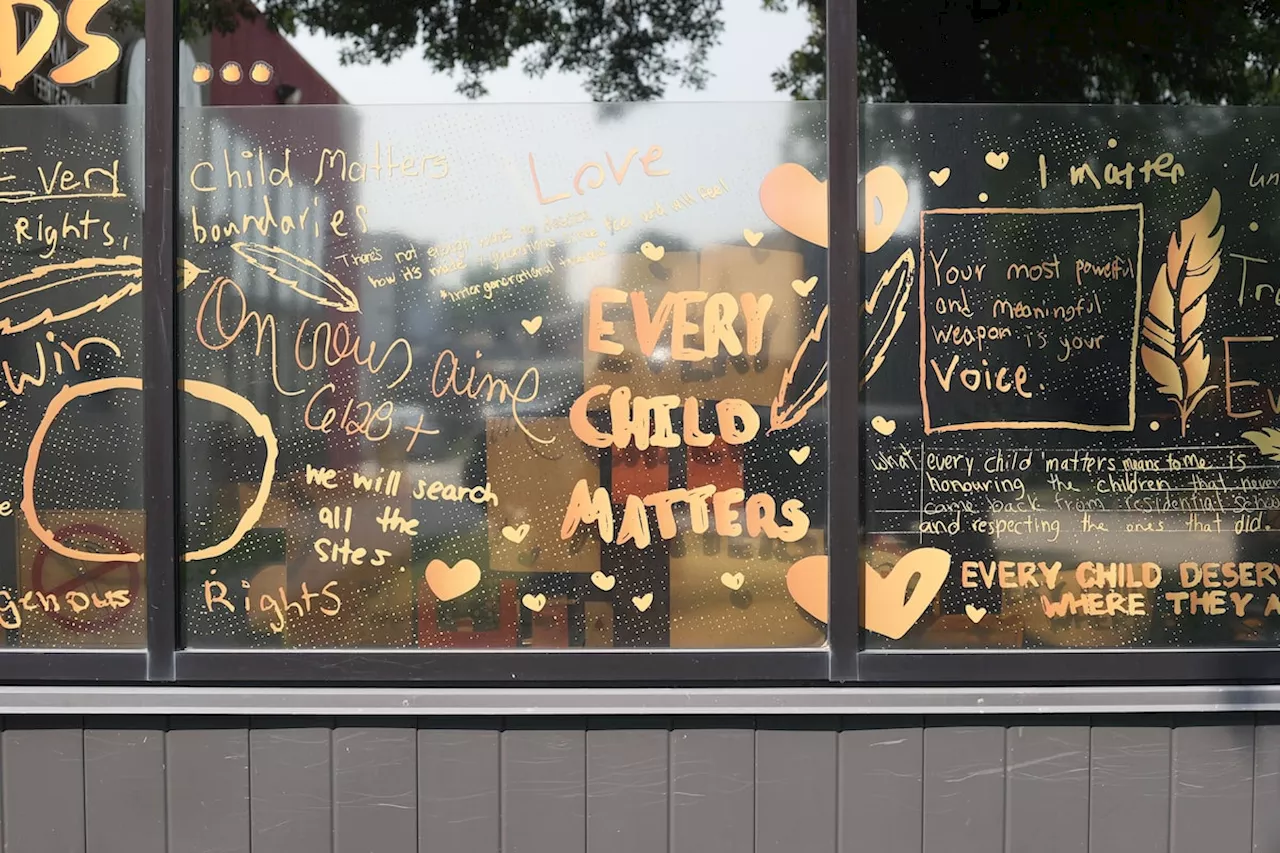 DS
...
Every
Rights,
Win
genous
Child Matters
boundaries
Love
There's not enough
how it's made. 7 generations
"intergenerational
On
aime
6120+
we will search
all the
sites.
Rights
EVERY
CHILD
MATTERS
I matter
Your most powerful
and meaningful
weapon is your
Voice.
what every child matters means to me is
honouring the children that never
came back from residential
and respecting the ones that did.
EVERY CHILD DESER
WHERE THEY A